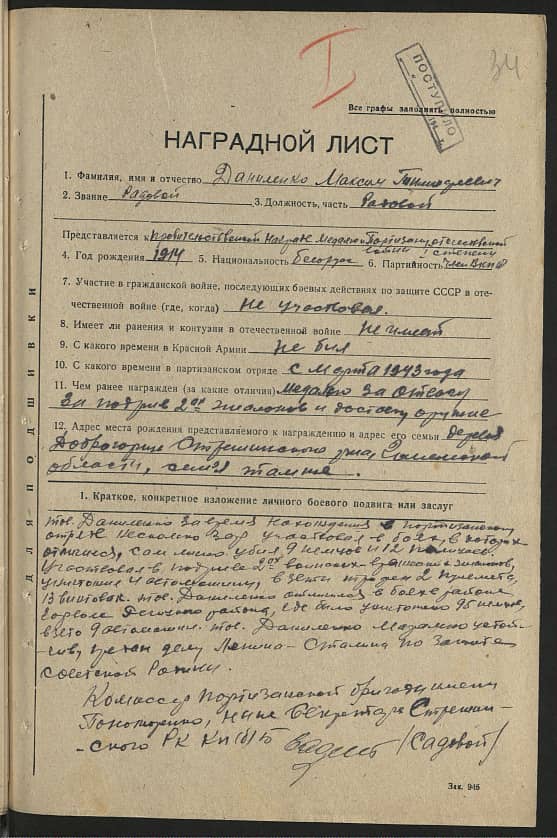 I
34
ПОСТУПИЛО
Все графы заполнять полностью
НАГРАДНОЙ ЛИСТ
1. Фамилия, имя и отчество Даниленко Максим Тимофеевич
2. Звание Рядовой 3. Должность, часть Рядовой
Представляется к правительственной награде медалью Партизану отечественной
войны I степени
4. Год рождения 1914 5. Национальность Белорус 6. Партийность член ВКП(б)
7. Участие в гражданской войне, последующих боевых действиях по защите СССР в оте-
чественной войне (где, когда) не участвовал.
8. Имеет ли ранения и контузии в отечественной войне не имеет
9. С какого времени в Красной Армии не был
10. С какого времени в партизанском отряде с марта 1943 года
11. Чем ранее награжден (за какие отличия) медалью За отвагу
за подрыв 2ух эшалонов и доставку оружие
12. Адрес места рождения представляемого к награждению и адрес его семьи деревня
Доброгоща Стрешинского р-на, Гомельской
области, семья там же.
1. Краткое, конкретное изложение личного боевого подвига или заслуг
тов. Даниленко за время нахождения в партизанском
отряде несколько раз участвовал в боях, в которых
отличился, сам лично убил 9 немцев и 12 полицаев,
участвовал в подрыве 2ух воинских вражеских эшалонов,
уничтожил 1 автомашину, взяти трофеи 2 пулемета,
13 винтовок. тов. Даниленко отличился в боях в районе
района, где было уничтожено 95 немцев,
взято 9 автомашин. тов. Даниленко морально устой-
чив, предан делу Ленина-Сталина по защите
советской Родины.
Комиссар партизанской бригады имени
Пономаренко, ныне Секретарь Стрешин-
ского РК КП(б)Б (Садовой)
Зак. 946
ДЛЯ ПОДШИВКИ